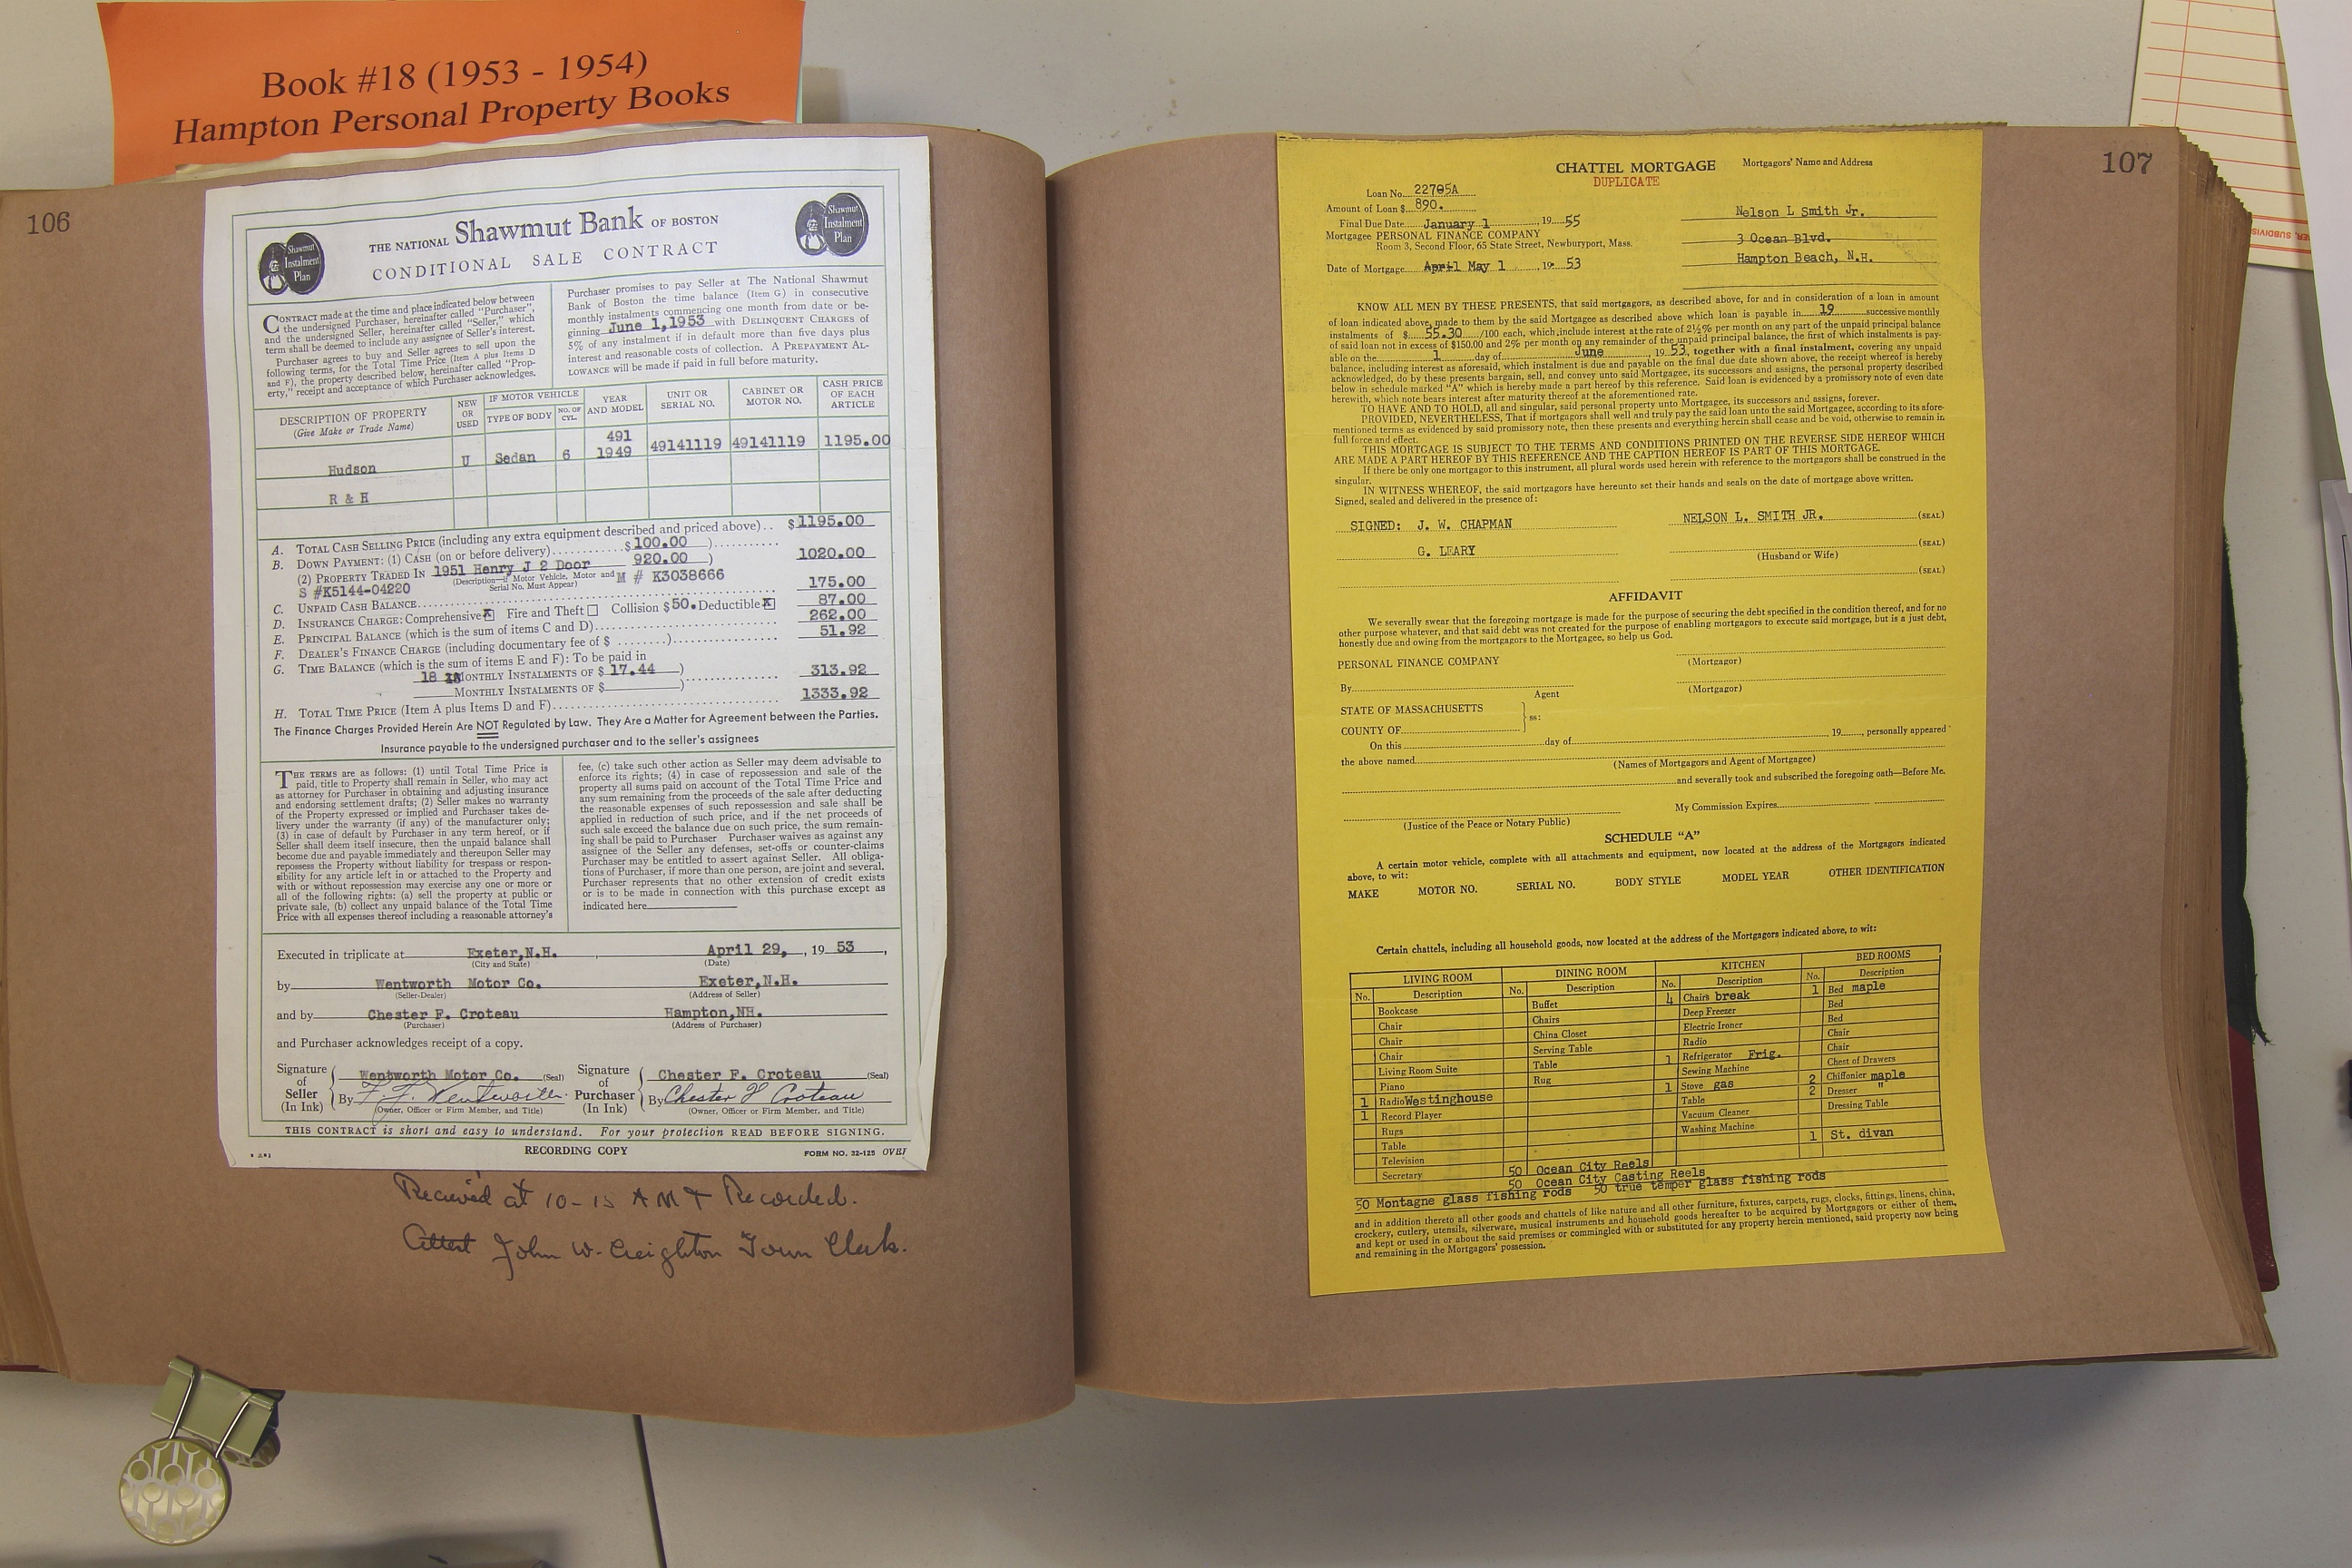 Book #18 (1953 - 1954)
Hampton Personal Property Books
106
Shawmut Instalment Plan
THE NATIONAL Shawmut Bank OF BOSTON
CONDITIONAL SALE CONTRACT
Shawmut Instalment Plan
CONTRACT made at the time and place indicated below between
the undersigned Purchaser, hereinafter called "Purchaser",
and the undersigned Seller, hereinafter called "Seller," which
term shall be deemed to include any assignee of Seller's interest.
Purchaser agrees to buy and Seller agrees to sell upon the
following terms, for the Total Time Price (Item A plus Items D
and F), the property described below, hereinafter called "Prop-
erty," receipt and acceptance of which Purchaser acknowledges.
Purchaser promises to pay Seller at The National Shawmut
Bank of Boston the time balance (Item G) in consecutive
monthly instalments commencing one month from date or be-
ginning June 1,1953 with DELINQUENT CHARGES of
5% of any instalment if in default more than five days plus
interest and reasonable costs of collection. A PREPAYMENT AL-
LOWANCE will be made if paid in full before maturity.
DESCRIPTION OF PROPERTY (Give Make or Trade Name) NEW OR USED IF MOTOR VEHICLE TYPE OF BODY NO. OF CYL. YEAR AND MODEL UNIT OR SERIAL NO. CABINET OR MOTOR NO. CASH PRICE OF EACH ARTICLE
Hudson U Sedan 6 491 1949 49141119 49141119 1195.00
R & H
A. TOTAL CASH SELLING PRICE (including any extra equipment described and priced above).. $1195.00
B. DOWN PAYMENT: (1) CASH (on or before delivery)..........$100.00 )..........
(2) PROPERTY TRADED IN 1951 Henry J 2 Door 920.00 ) 1020.00
(Description—if Motor Vehicle, Motor and Serial No. Must Appear) M # K3038666
S #K5144-04220
C. UNPAID CASH BALANCE.......... 175.00
D. INSURANCE CHARGE: Comprehensive X Fire and Theft Collision $50. Deductible X 87.00
E. PRINCIPAL BALANCE (which is the sum of items C and D).......... 262.00
F. DEALER'S FINANCE CHARGE (including documentary fee of $ ........).......... 51.92
G. TIME BALANCE (which is the sum of items E and F): To be paid in
18 MONTHLY INSTALMENTS OF $ 17.44 ) 313.92
MONTHLY INSTALMENTS OF $ )..........
H. TOTAL TIME PRICE (Item A plus Items D and F).......... 1333.92
The Finance Charges Provided Herein Are NOT Regulated by Law. They Are a Matter for Agreement between the Parties.
Insurance payable to the undersigned purchaser and to the seller's assignees
THE TERMS are as follows: (1) until Total Time Price is
paid, title to Property shall remain in Seller, who may act
as attorney for Purchaser in obtaining and adjusting insurance
and endorsing settlement drafts; (2) Seller makes no warranty
of the Property expressed or implied and Purchaser takes de-
livery under the warranty (if any) of the manufacturer only;
(3) in case of default by Purchaser in any term hereof, or if
Seller shall deem itself insecure, then the unpaid balance shall
become due and payable immediately and thereupon Seller may
repossess the Property without liability for trespass or respon-
sibility for any article left in or attached to the Property and
with or without repossession may exercise any one or more or
all of the following rights: (a) sell the property at public or
private sale, (b) collect any unpaid balance of the Total Time
Price with all expenses thereof including a reasonable attorney's
fee, (c) take such other action as Seller may deem advisable to
enforce its rights; (4) in case of repossession and sale of the
property all sums paid on account of the Total Time Price and
any sum remaining from the proceeds of the sale after deducting
the reasonable expenses of such repossession and sale shall be
applied in reduction of such price, and if the net proceeds of
such sale exceed the balance due on such price, the sum remain-
ing shall be paid to Purchaser Purchaser waives as against any
assignee of the Seller any defenses, set-offs or counter-claims
Purchaser may be entitled to assert against Seller. All obliga-
tions of Purchaser, if more than one person, are joint and several.
Purchaser represents that no other extension of credit exists
or is to be made in connection with this purchase except as
indicated here
Executed in triplicate at Exeter,N.H. , April 29, , 19 53 ,
(City and State) (Date)
by Wentworth Motor Co. Exeter,N.H.
(Seller-Dealer) (Address of Seller)
and by Chester F. Croteau Hampton,NH.
(Purchaser) (Address of Purchaser)
and Purchaser acknowledges receipt of a copy.
Signature of Seller (In Ink) Wentworth Motor Co. (Seal) Signature of Purchaser (In Ink) Chester F. Croteau (Seal)
By F. F. Wentworth By Chester F Croteau
(Owner, Officer or Firm Member, and Title) (Owner, Officer or Firm Member, and Title)
THIS CONTRACT is short and easy to understand. For your protection READ BEFORE SIGNING.
RECORDING COPY FORM NO. 32-125 OVER
Recieved at 10-15 A M & Recorded.
Attest John W. Creighton Town Clerk.
107
CHATTEL MORTGAGE Mortgagors' Name and Address
DUPLICATE
Loan No. 22705A
Amount of Loan $ 890.
Final Due Date January 1 , 19 55
Mortgagee PERSONAL FINANCE COMPANY
Room 3, Second Floor, 65 State Street, Newburyport, Mass.
Date of Mortgage April May 1 , 19 53
Nelson L Smith Jr.
3 Ocean Blvd.
Hampton Beach, N.H.
KNOW ALL MEN BY THESE PRESENTS, that said mortgagors, as described above, for and in consideration of a loan in amount
of loan indicated above, made to them by the said Mortgagee as described above which loan is payable in 19 successive monthly
instalments of $ 55.30 /100 each, which include interest at the rate of 2½% per month on any part of the unpaid principal balance
of said loan not in excess of $150.00 and 2% per month on any remainder of the unpaid principal balance, the first of which instalments is pay-
able on the 1 day of June , 19 53, together with a final instalment, covering any unpaid
balance, including interest as aforesaid, which instalment is due and payable on the final due date shown above, the receipt whereof is hereby
acknowledged, do by these presents bargain, sell, and convey unto said Mortgagee, its successors and assigns, the personal property described
below in schedule marked "A" which is hereby made a part hereof by this reference. Said loan is evidenced by a promissory note of even date
herewith, which note bears interest after maturity thereof at the aforementioned rate.
TO HAVE AND TO HOLD, all and singular, said personal property unto Mortgagee, its successors and assigns, forever.
PROVIDED, NEVERTHELESS, That if mortgagors shall well and truly pay the said loan unto the said Mortgagee, according to its afore-
mentioned terms as evidenced by said promissory note, then these presents and everything herein shall cease and be void, otherwise to remain in
full force and effect.
THIS MORTGAGE IS SUBJECT TO THE TERMS AND CONDITIONS PRINTED ON THE REVERSE SIDE HEREOF WHICH
ARE MADE A PART HEREOF BY THIS REFERENCE AND THE CAPTION HEREOF IS PART OF THIS MORTGAGE.
If there be only one mortgagor to this instrument, all plural words used herein with reference to the mortgagors shall be construed in the
singular.
IN WITNESS WHEREOF, the said mortgagors have hereunto set their hands and seals on the date of mortgage above written.
Signed, sealed and delivered in the presence of:
SIGNED: J. W. CHAPMAN NELSON L. SMITH JR. (SEAL)
G. LEARY (SEAL)
(Husband or Wife)
(SEAL)
AFFIDAVIT
We severally swear that the foregoing mortgage is made for the purpose of securing the debt specified in the condition thereof, and for no
other purpose whatever, and that said debt was not created for the purpose of enabling mortgagors to execute said mortgage, but is a just debt,
honestly due and owing from the mortgagors to the Mortgagee, so help us God.
PERSONAL FINANCE COMPANY (Mortgagor)
By (Mortgagor)
Agent
STATE OF MASSACHUSETTS
ss:
COUNTY OF
On this day of 19 , personally appeared
the above named
(Names of Mortgagors and Agent of Mortgagee)
and severally took and subscribed the foregoing oath—Before Me.
My Commission Expires
(Justice of the Peace or Notary Public)
SCHEDULE "A"
A certain motor vehicle, complete with all attachments and equipment, now located at the address of the Mortgagors indicated
above, to wit:
MAKE MOTOR NO. SERIAL NO. BODY STYLE MODEL YEAR OTHER IDENTIFICATION
Certain chattels, including all household goods, now located at the address of the Mortgagors indicated above, to wit:
LIVING ROOM DINING ROOM KITCHEN BED ROOMS
No. Description No. Description No. Description No. Description
Bookcase Buffet 4 Chairs break 1 Bed maple
Chair Chairs Deep Freezer Bed
Chair China Closet Electric Ironer Bed
Chair Serving Table Radio Chair
Living Room Suite Table 1 Refrigerator Frig. Chair
Piano Rug Sewing Machine Chest of Drawers
1 Radio Westinghouse 1 Stove gas 2 Chiffonier maple
1 Record Player Table 2 Dresser "
Rugs Vacuum Cleaner Dressing Table
Table Washing Machine
Television 1 St. divan
Secretary 50 Ocean City Reels
50 Ocean City Casting Reels
50 Montagne glass fishing rods 50 true temper glass fishing rods
and in addition thereto all other goods and chattels of like nature and all other furniture, fixtures, carpets, rugs, clocks, fittings, linens, china,
crockery, cutlery, utensils, silverware, musical instruments and household goods hereafter to be acquired by Mortgagors or either of them,
and kept or used in or about the said premises or commingled with or substituted for any property herein mentioned, said property now being
and remaining in the Mortgagors' possession.